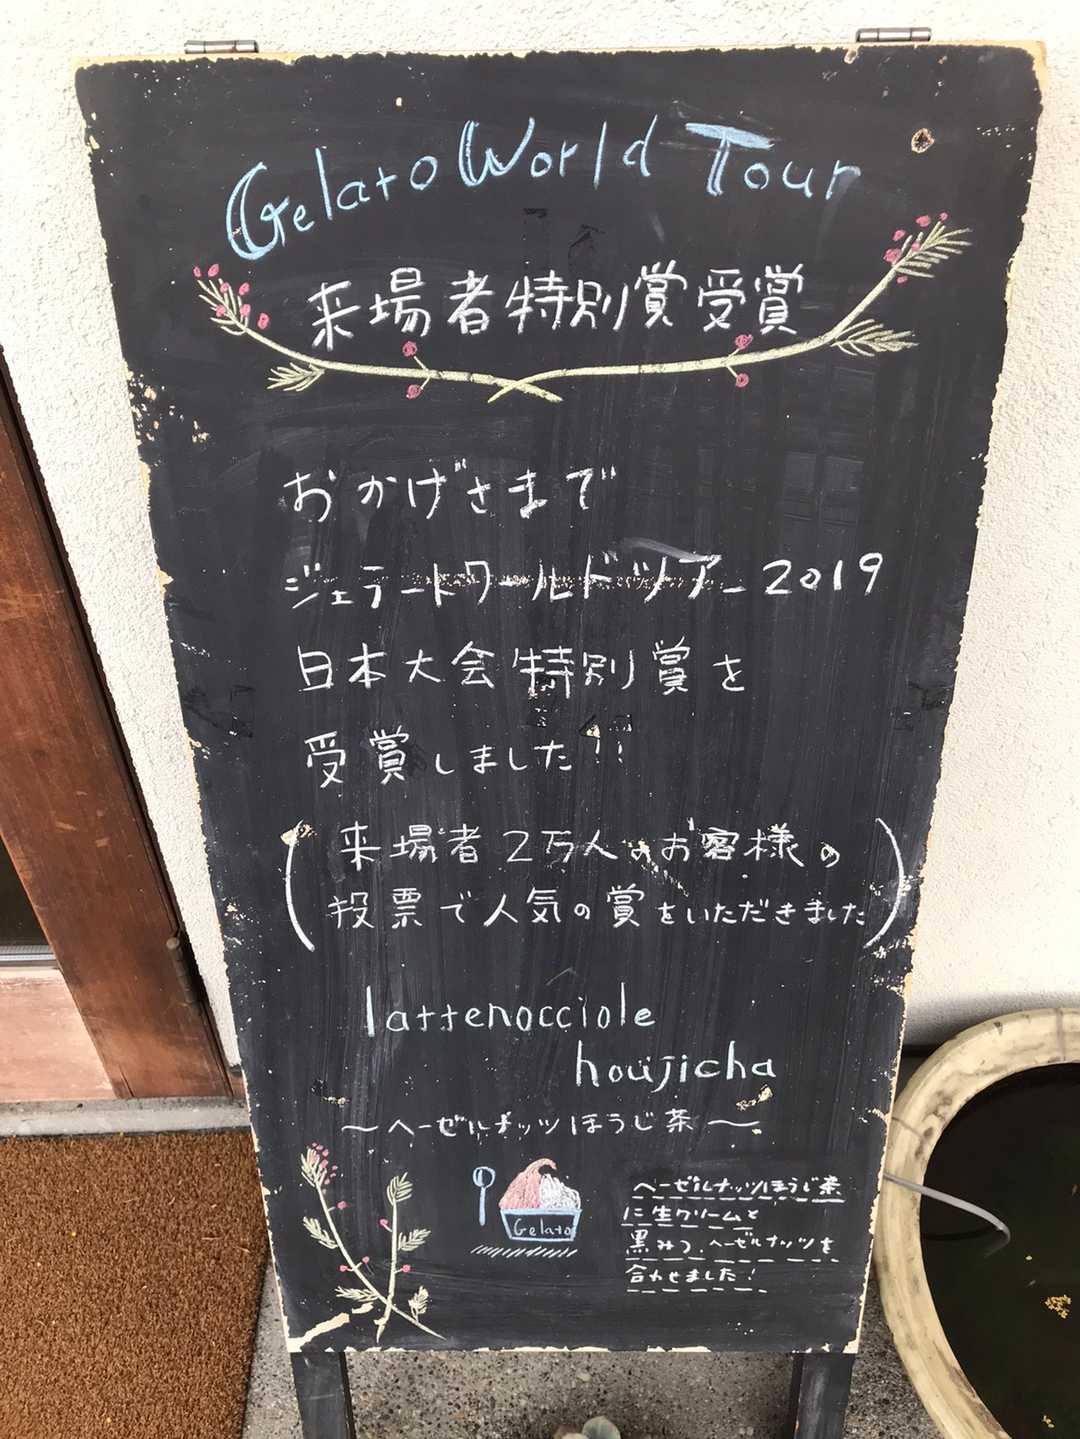 Gelato World Tour
来場者特別賞受賞
おかげさまで
ジェラートワールドツアー2019
日本大会特別賞を
受賞しました!!
(来場者2万人のお客様の
投票で人気の賞をいただきました)
lattenocciole
houjicha
〜ヘーゼルナッツほうじ茶〜
Gelato
ヘーゼルナッツほうじ茶
に生クリームと
黒みつ、ヘーゼルナッツを
合わせました!